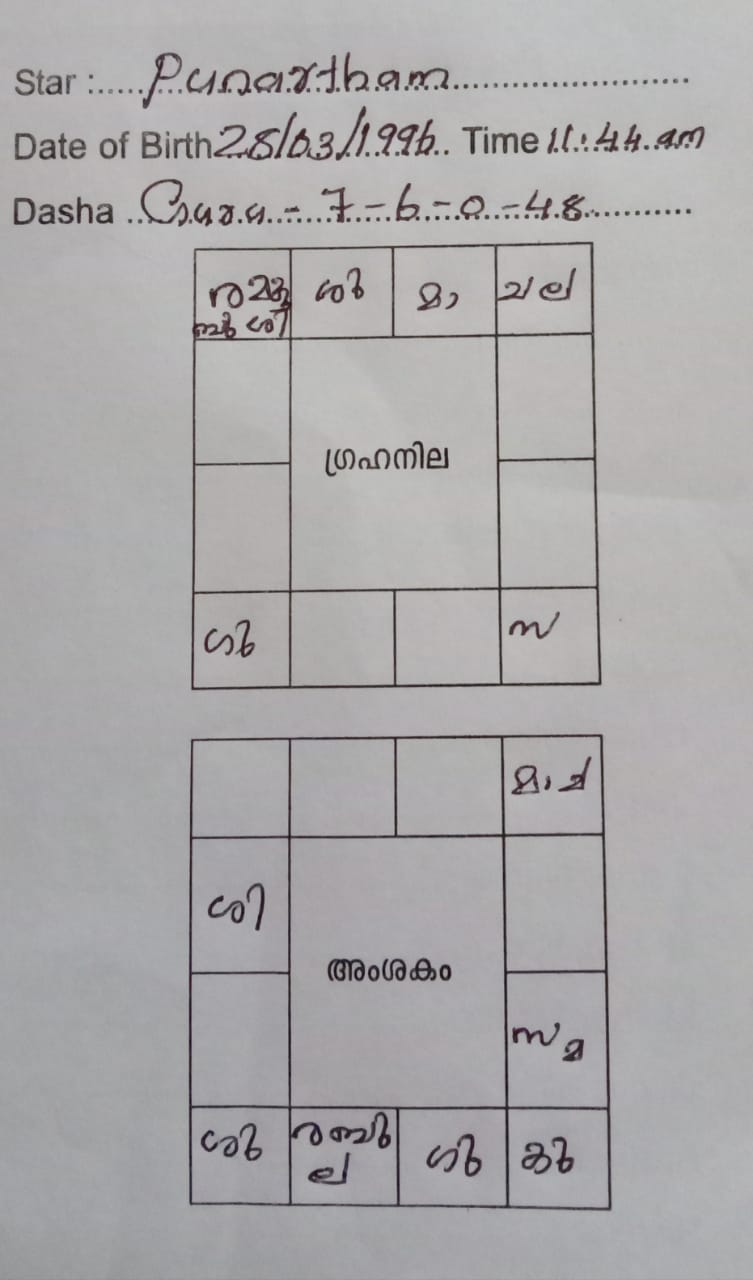 Star :..... Punartham
Date of Birth 28/03/1996.. Time 11:44 am
Dasha .. Guru - 7 - 6 - 0 - 48
ര മ കു ശു മാ ച ല
ബു ശി
ഗ്രഹനില
ഗു സ
മാ ച
ശി
അംശകം
സ മ
ശു ര ബു ഗു കു
ല